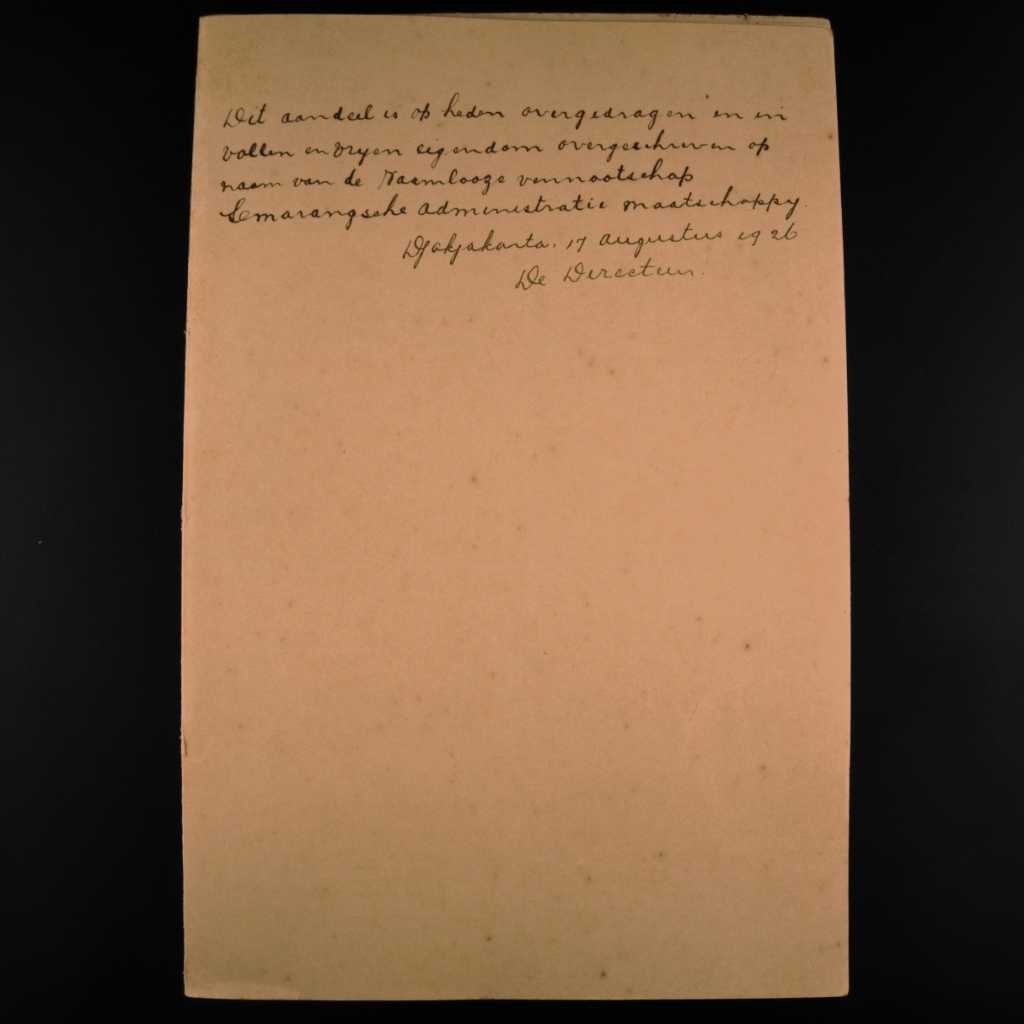 Dit aandeel is op heden overgedragen en in
vollen en vryen eigendom overgeschreven op
naam van de Naamlooze vennootschap
Semarangsche administratie maatschappy.
Djokjakarta. 17 augustus 1926
De Directeur.